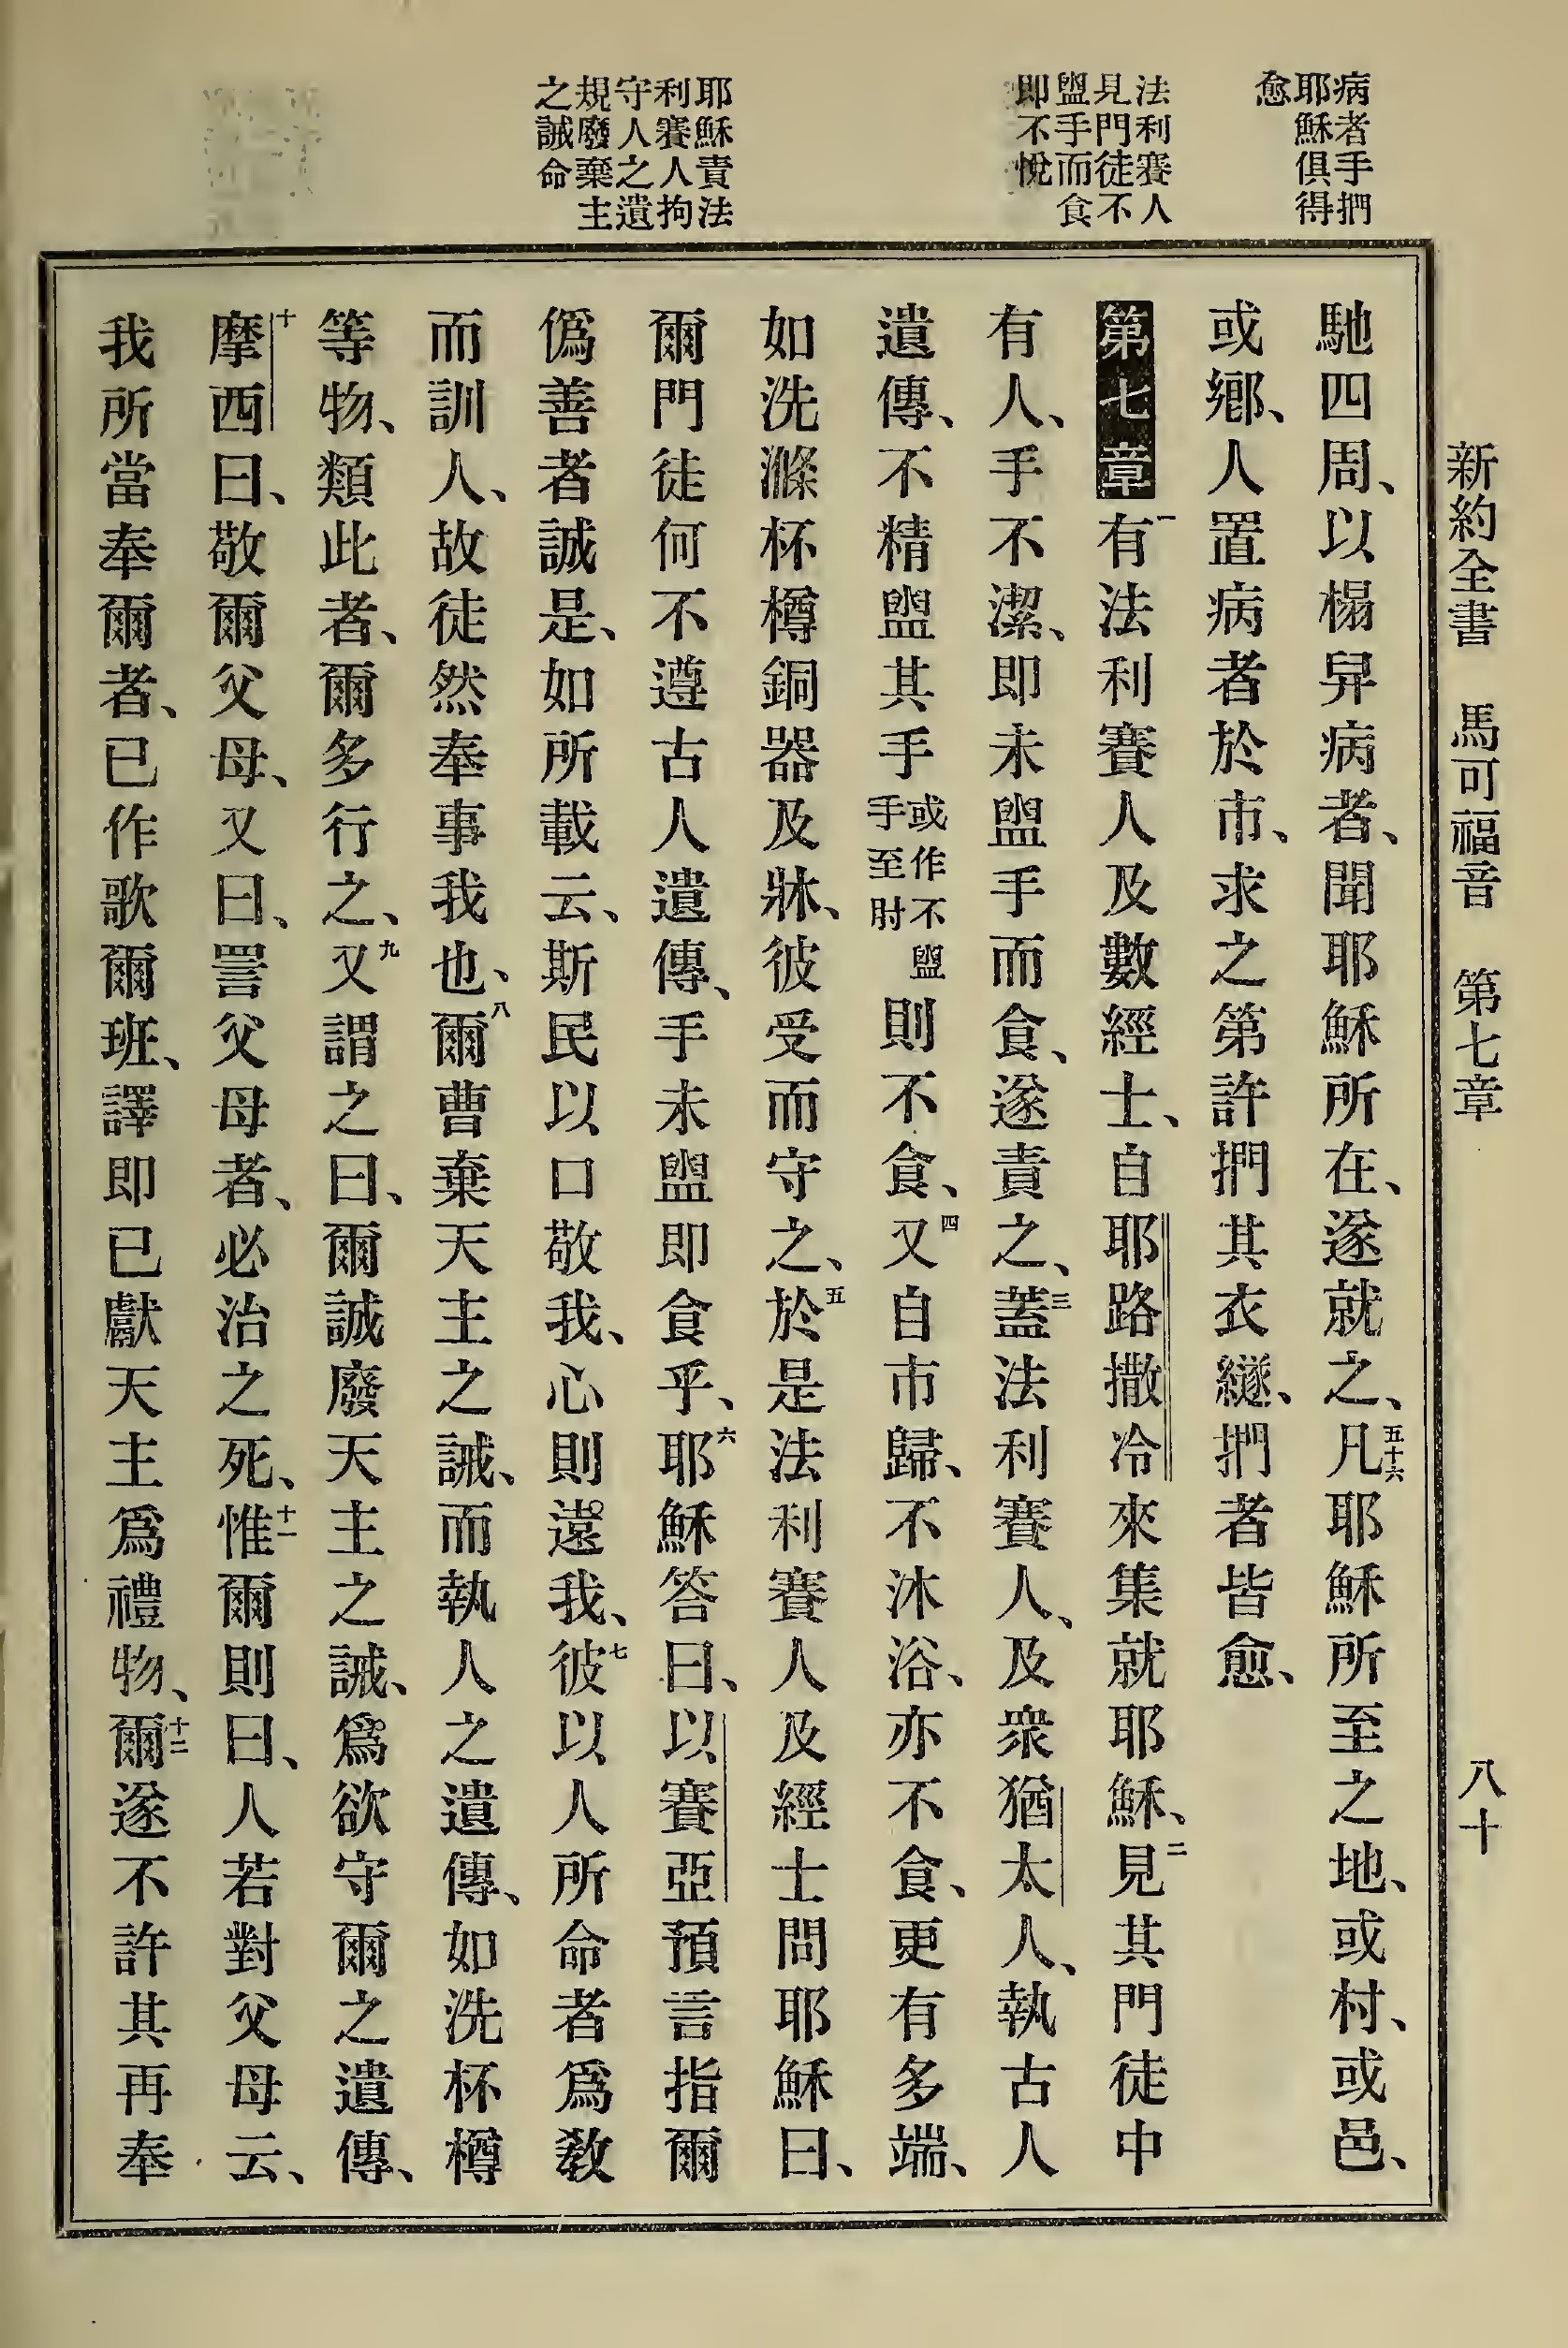 新約全書 馬可福音 第七章 八十
病者手捫
耶穌俱得
愈
法利賽人
見門徒不
盥手而食
即不悅
耶穌責法
利賽人拘
守人之遺
規廢棄主
之誡命
馳四周、以榻舁病者、聞耶穌所在、遂就之、五十六凡耶穌所至之地、或村、或邑、
或鄉、人置病者於市、求之第許捫其衣繸、捫者皆愈、
第七章 一有法利賽人及數經士、自耶路撒冷來集就耶穌、二見其門徒中
有人、手不潔、即未盥手而食、遂責之、三蓋法利賽人、及衆猶太人、執古人
遺傳、不精盥其手或作不盥手至肘則不食、四又自市歸、不沐浴、亦不食、更有多端、
如洗滌杯樽銅器及牀、彼受而守之、五於是法利賽人及經士問耶穌曰、
爾門徒何不遵古人遺傳、手未盥即食乎、六耶穌答曰、以賽亞預言指爾
僞善者誠是、如所載云、斯民以口敬我、心則遠我、七彼以人所命者爲教
而訓人、故徒然奉事我也、八爾曹棄天主之誡、而執人之遺傳、如洗杯樽
等物、類此者、爾多行之、九又謂之曰、爾誠廢天主之誡、爲欲守爾之遺傳、
十摩西曰、敬爾父母、又曰、詈父母者、必治之死、十一惟爾則曰、人若對父母云、
我所當奉爾者、已作歌爾班、譯即已獻天主爲禮物、十二爾遂不許其再奉